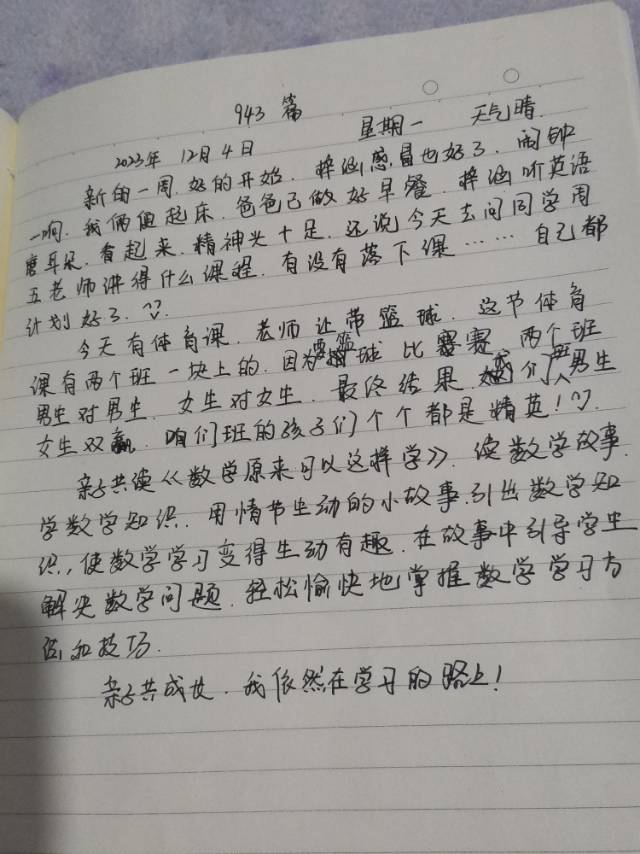 943 篇
2023年 12月4日 星期一 天气晴.
新的一周.好的开始.梓涵感冒也好了.闹钟
一响.我俩便起床.爸爸已做好早餐.梓涵听英语
磨耳朵.看起来.精神头十足.还说今天去问同学周
五老师讲得什么课程.有没有落下课……自己都
计划好了.
今天有体育课.老师让带篮球.这节体育
课有两个班一块上的.因为要篮球比赛.两个班
男生对男生.女生对女生.最终结果.我们班男生
女生双赢.咱们班的孩子们个个都是精英!
亲子共读《数学原来可以这样学》.读数学故事.
学数学知识.用情节生动的小故事.引出数学知
识,使数学学习变得生动有趣.在故事中引导学生
解决数学问题.轻松愉快地掌握数学学习方
法和技巧.
亲子共成长.我依然在学习的路上!